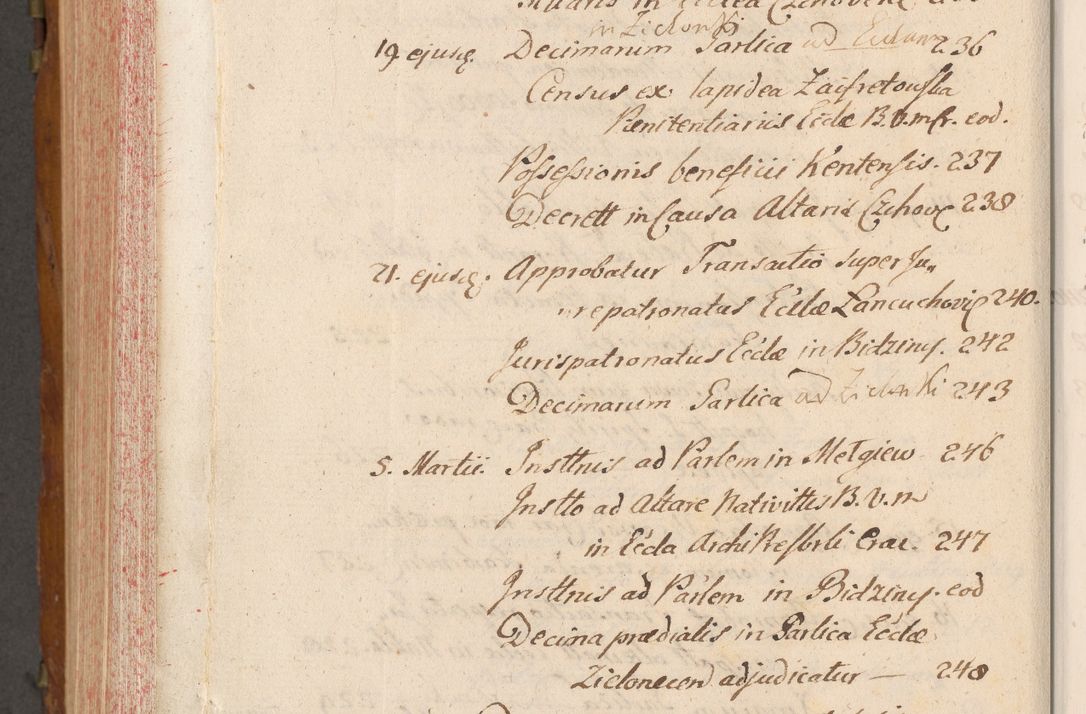 in Zielonki
19 ejusq. Decimarum Sartica ad 236
Census ex lapidea
Penitentiariis Ecclæ B.V.m eod.
Possessionis beneficii Kentensis. 237
Decrett in Causa Altaris Czchovc 238
21. ejusq. Approbatur Transactio super Ju„
„repatronatus Ecclæ Lancuchovic 240.
Jurispatronatus Ecclæ in Bidziny. 242
Decimarum Sartica ad Zielonki 243
5. Martii. Insttnis ad Parlem in Mełgiew 246
Instto ad Altare Nativittis B.V.m
in Eccla Archi Crac. 247
Insttnis ad Parlem in Bidziny. eod
Decima prædialis in Partica Ecclæ
Zielonecen adjudicatur — 248